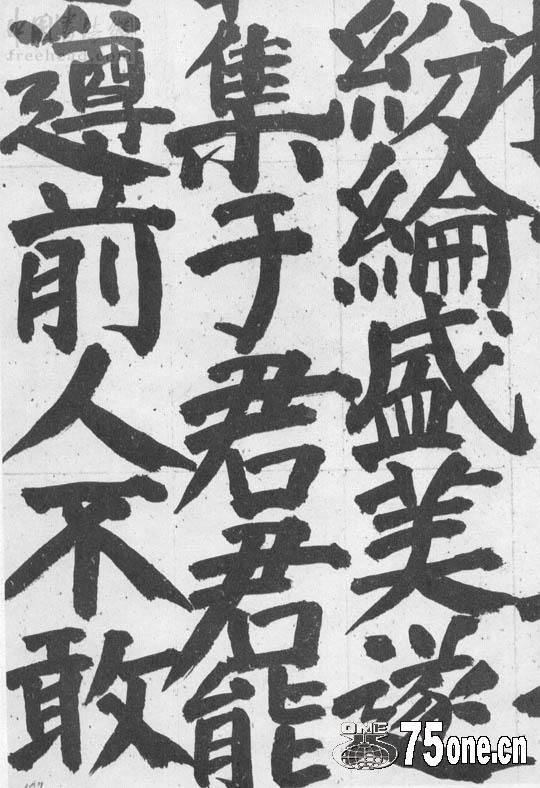 紛綸盛美遂
集于君君能
遵前人不敢
freehead.com
ONE
75one.cn
107